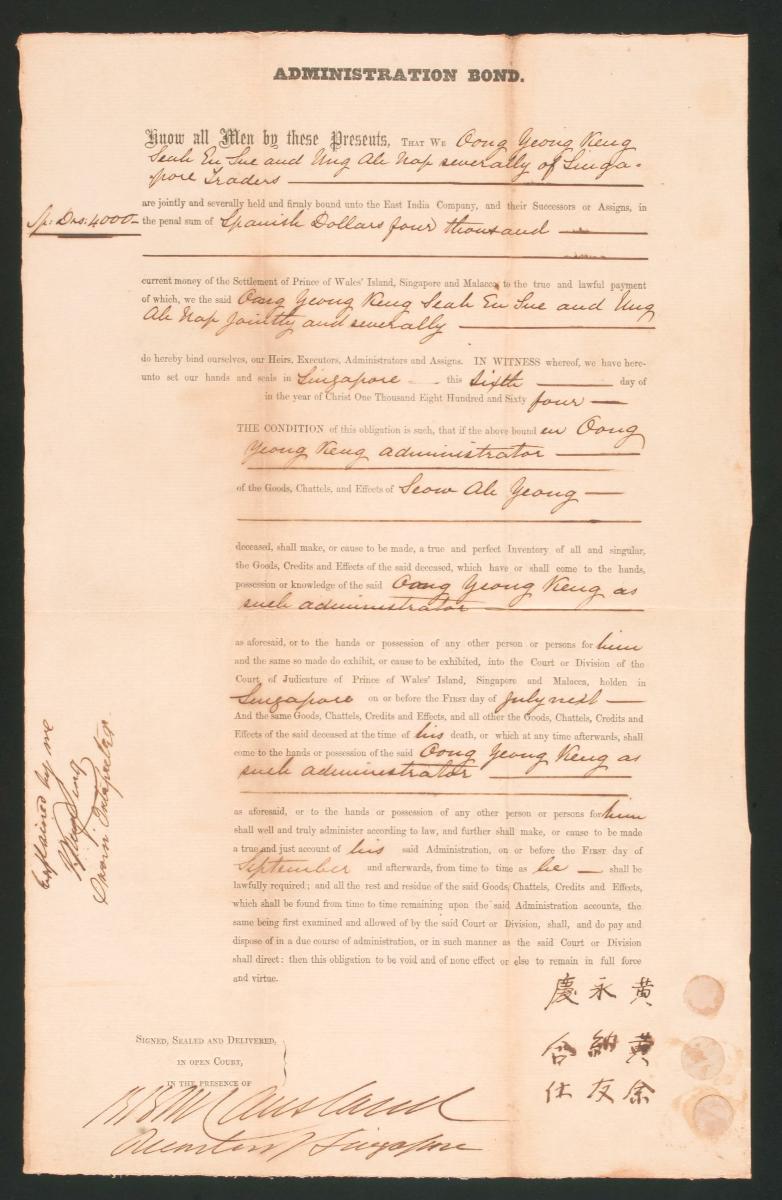 ADMINISTRATION BOND.
Know all Men by these Presents, THAT WE Oong Yeong Keng
Seah En Sue and Ung Ah Nap severally of Singa-
pore Traders
are jointly and severally held and firmly bound unto the East India Company, and their Successors or Assigns, in
Sp: Drs: 4000- the penal sum of Spanish Dollars four thousand
current money of the Settlement of Prince of Wales' Island, Singapore and Malacca, to the true and lawful payment
of which, we the said Oong Yeong Keng Seah En Sue and Ung
Ah Nap Jointly and severally
do hereby bind ourselves, our Heirs, Executors, Administrators and Assigns. IN WITNESS whereof, we have here-
unto set our hands and seals in Singapore this Sixth day of
in the year of Christ One Thousand Eight Hundred and Sixty four
THE CONDITION of this obligation is such, that if the above bound en Oong
Yeong Keng administrator
of the Goods, Chattels, and Effects of Seow Ah Yeong
deceased, shall make, or cause to be made, a true and perfect Inventory of all and singular,
the Goods, Credits and Effects of the said deceased, which have or shall come to the hands,
possession or knowledge of the said Oong Yeong Keng as
such administrator
as aforesaid, or to the hands or possession of any other person or persons for him
and the same so made do exhibit, or cause to be exhibited, into the Court or Division of the
Court of Judicature of Prince of Wales' Island, Singapore and Malacca, holden in
Singapore on or before the FIRST day of July next
And the same Goods, Chattels, Credits and Effects, and all other the Goods, Chattels, Credits and
Effects of the said deceased at the time of his death, or which at any time afterwards, shall
come to the hands or possession of the said Oong Yeong Keng as
such administrator
as aforesaid, or to the hands or possession of any other person or persons for him
shall well and truly administer according to law, and further shall make, or cause to be made
a true and just account of his said Administration, on or before the FIRST day of
September and afterwards, from time to time as he shall be
lawfully required; and all the rest and residue of the said Goods, Chattels, Credits and Effects,
which shall be found from time to time remaining upon the said Administration accounts, the
same being first examined and allowed of by the said Court or Division, shall, and do pay and
dispose of in a due course of administration, or in such manner as the said Court or Division
shall direct: then this obligation to be void and of none effect or else to remain in full force
and virtue.
Explained by me
Sworn Interpreter
黃永慶
黃納合
余友仕
SIGNED, SEALED AND DELIVERED,
IN OPEN COURT,
IN THE PRESENCE OF
Causland
Singapore